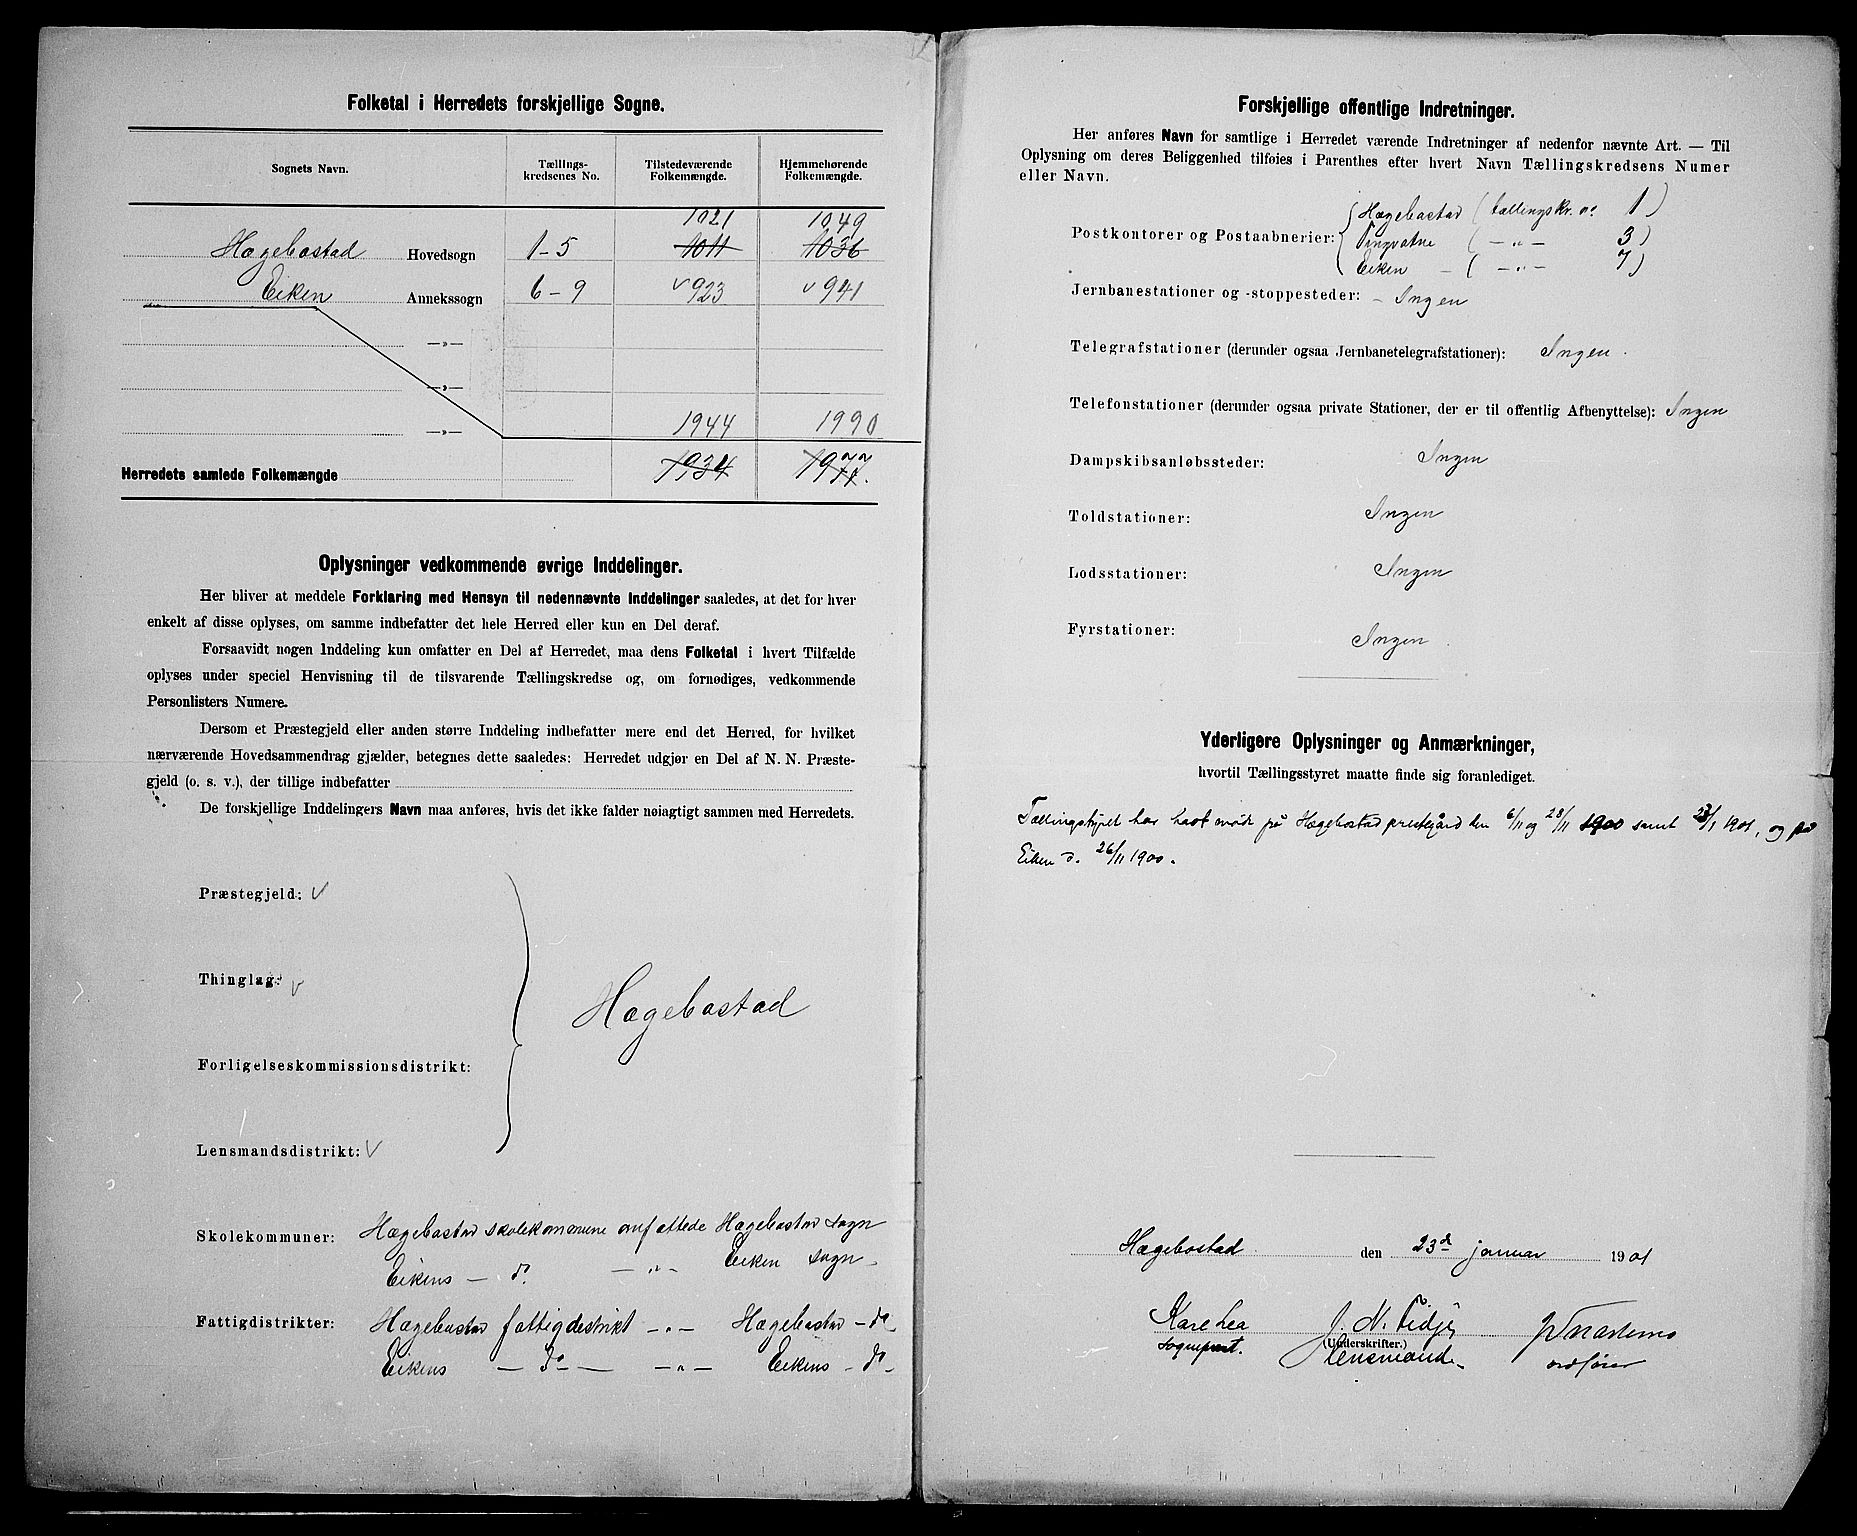 Folketal i Herredets forskjellige Sogne.
Sognets Navn. Tællings-kredsenes No. Tilstedeværende Folkemængde. Hjemmehørende Folkemængde.
1021 1049
Hægebostad Hovedsogn 1-5 1011 1036
Eiken Annekssogn 6-9 v 923 v 941
—»—
—»—
—»— 1944 1990
Herredets samlede Folkemængde 1934 1977.
Oplysninger vedkommende øvrige Inddelinger.
Her bliver at meddele Forklaring med Hensyn til nedennævnte Inddelinger saaledes, at det for hver
enkelt af disse oplyses, om samme indbefatter det hele Herred eller kun en Del deraf.
Forsaavidt nogen Inddeling kun omfatter en Del af Herredet, maa dens Folketal i hvert Tilfælde
oplyses under speciel Henvisning til de tilsvarende Tællingskredse og, om fornødiges, vedkommende
Personlisters Numere.
Dersom et Præstegjeld eller anden større Inddeling indbefatter mere end det Herred, for hvilket
nærværende Hovedsammendrag gjælder, betegnes dette saaledes: Herredet udgjør en Del af N. N. Præste-
gjeld (o. s. v.), der tillige indbefatter
De forskjellige Inddelingers Navn maa anføres, hvis det ikke falder nøiagtigt sammen med Herredets.
Præstegjeld: v
Thinglag: v
Hægebostad
Forligelseskommissionsdistrikt:
Lensmandsdistrikt: v
Skolekommuner: Hægebostad skolekommune omfattede Hægebostad sogn
Eikens — do. — „ — Eiken sogn
Fattigdistrikter: Hægebostad fattigdistrikt — „ — Hægebostad — do
Eikens — do — — „ — Eikens — do
Forskjellige offentlige Indretninger.
Her anføres Navn for samtlige i Herredet værende Indretninger af nedenfor nævnte Art. — Til
Oplysning om deres Beliggenhed tilføies i Parenthes efter hvert Navn Tællingskredsens Numer
eller Navn.
Hægebostad (tællingskr. no 1)
Postkontorer og Postaabnerier: Tingvatne ( — „ — 3)
Eiken — ( — „ — 7)
Jernbanestationer og -stoppesteder: — Ingen
Telegrafstationer (derunder ogsaa Jernbanetelegrafstationer): Ingen.
Telefonstationer (derunder ogsaa private Stationer, der er til offentlig Afbenyttelse): Ingen
Dampskibsanløbssteder: Ingen
Toldstationer: Ingen
Lodsstationer: Ingen
Fyrstationer: Ingen.
Yderligere Oplysninger og Anmærkninger,
hvortil Tællingsstyret maatte finde sig foranlediget.
Tællingstyret har havt møde på Hægebostad prestegård den 6/11 og 28/11 1900 samt 23/1 1901, og på
Eiken d. 26/11 1900.
Hægebostad den 23d januar 1901
Kare Lea J. N. Tidje
(Underskrifter.)
sogneprest. lensmand ordfører